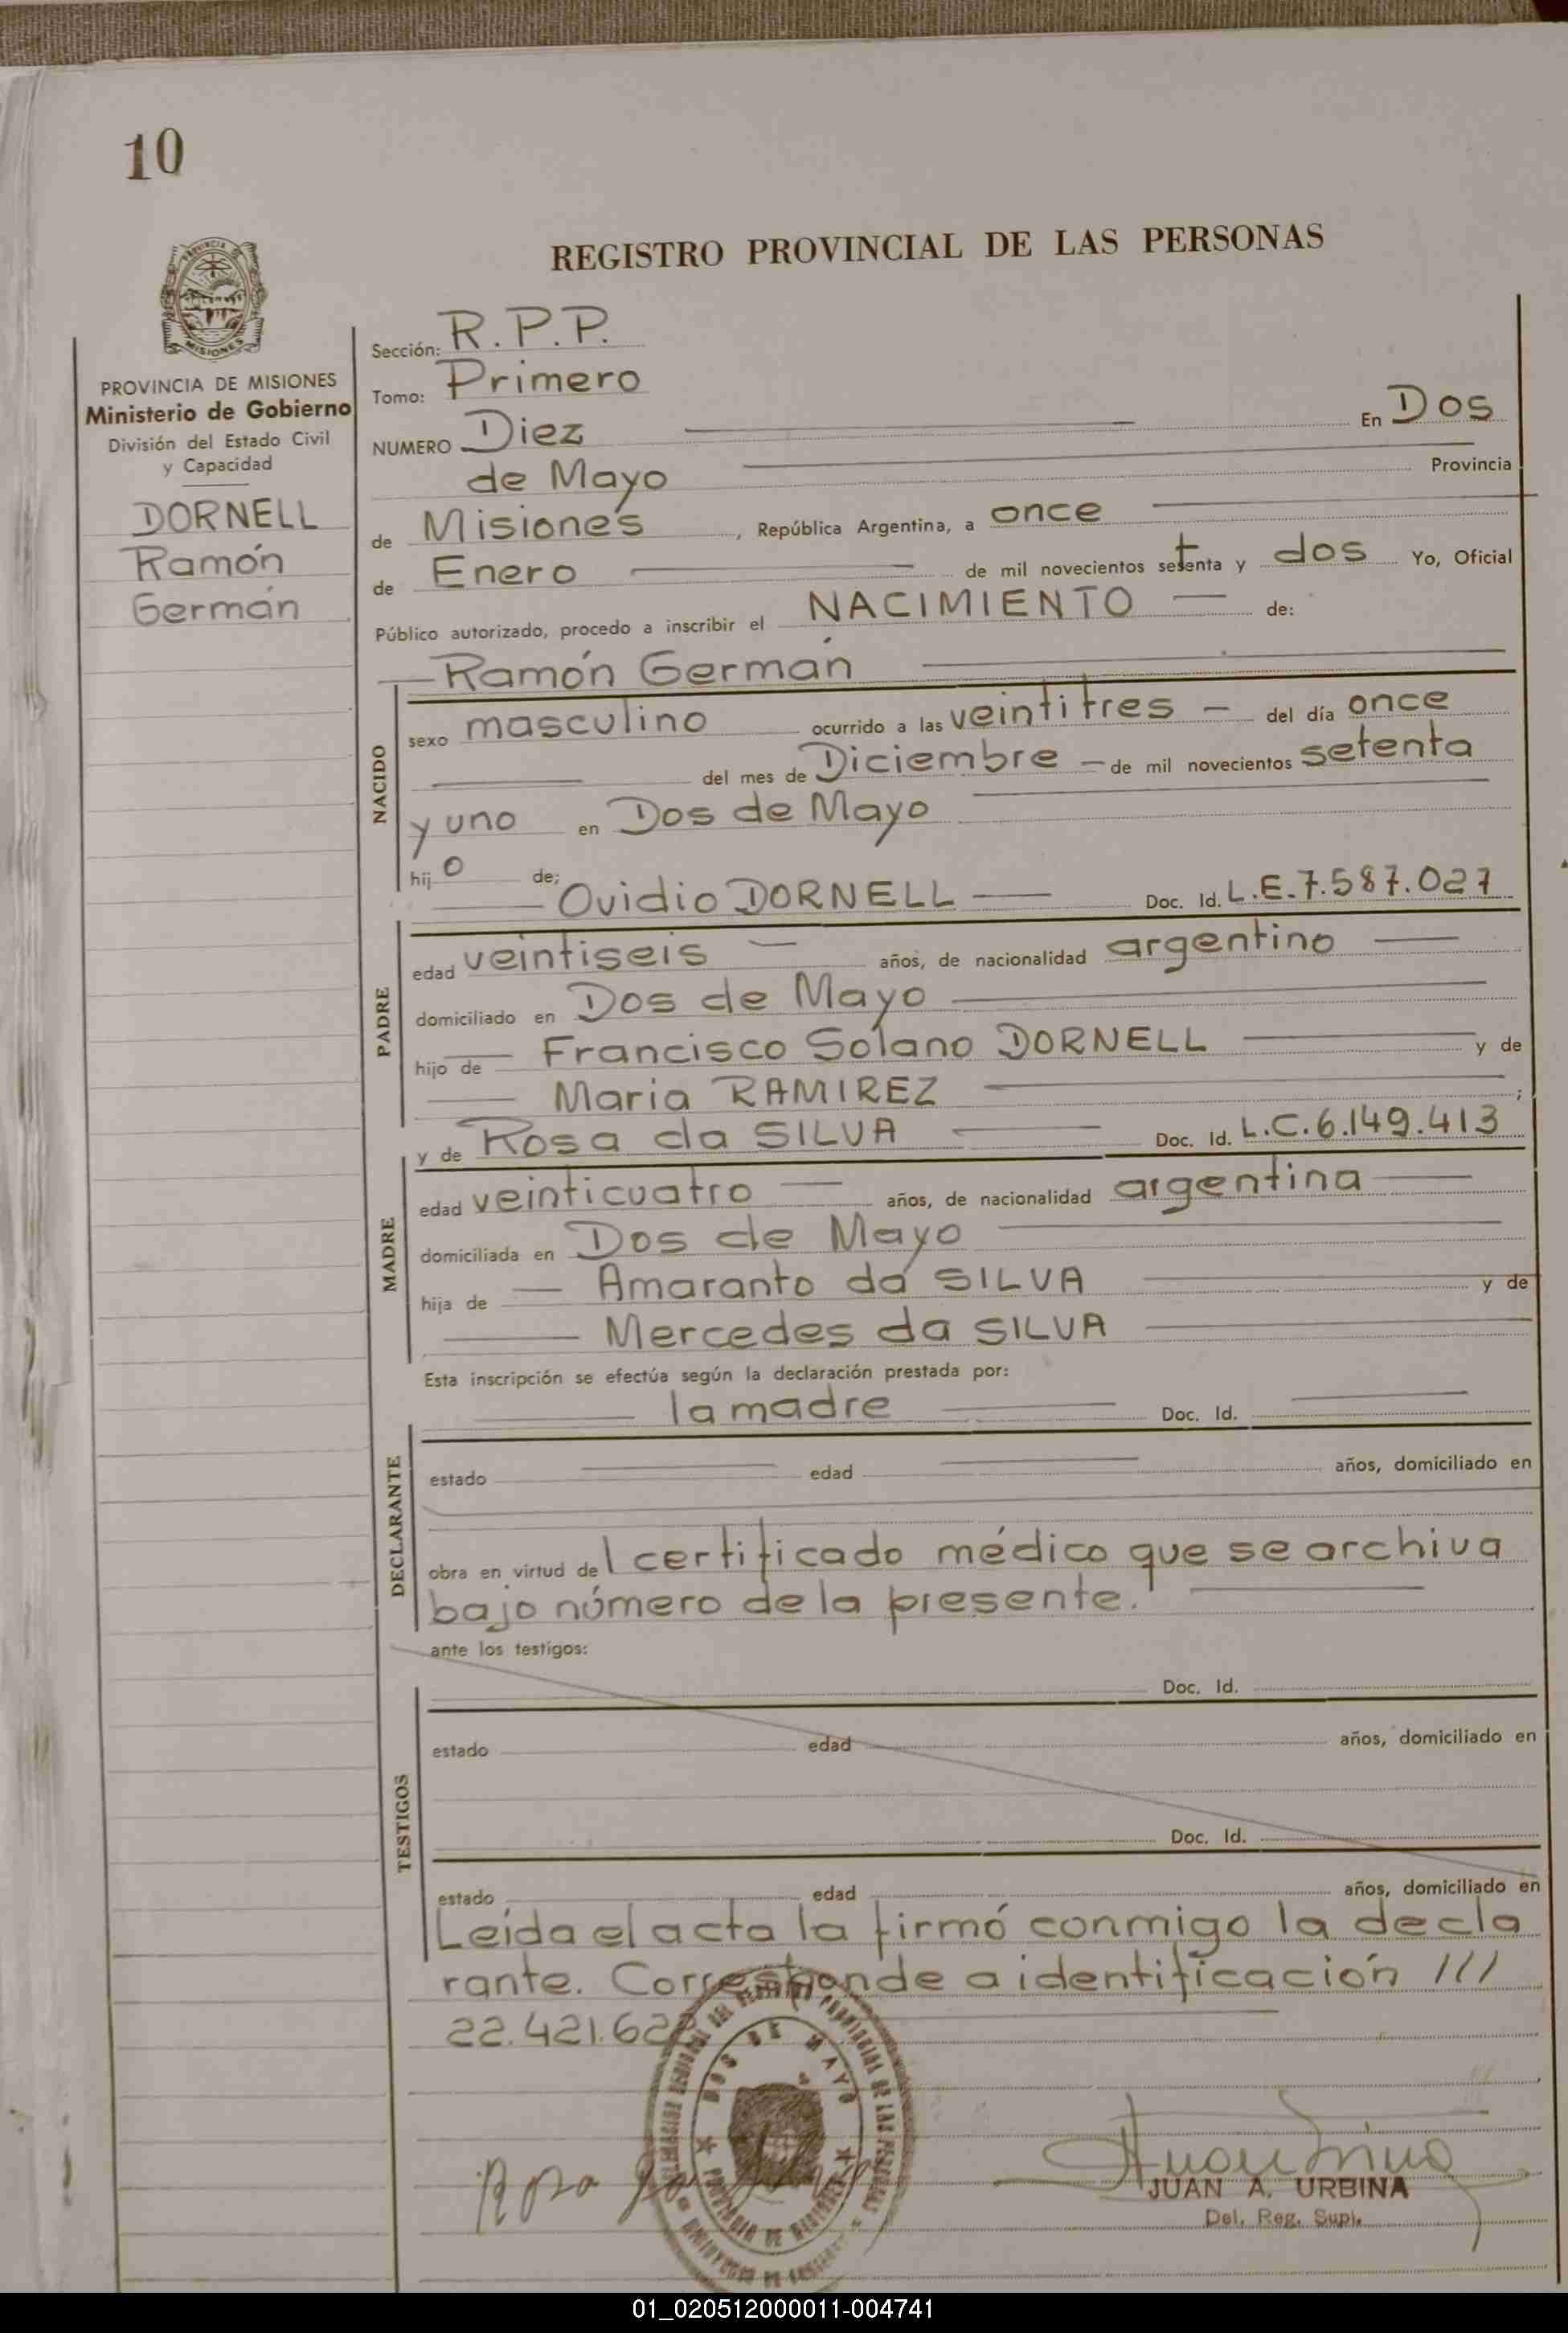 10
REGISTRO PROVINCIAL DE LAS PERSONAS
PROVINCIA DE MISIONES
Ministerio de Gobierno
División del Estado Civil
y Capacidad
DORNELL
Ramón
Germán
Sección: R.P.P.
Tomo: Primero
NUMERO Diez En Dos
de Mayo Provincia
de Misiones, República Argentina, a once
de Enero de mil novecientos setenta y dos Yo, Oficial
Público autorizado, procedo a inscribir el NACIMIENTO de:
Ramón Germán
NACIDO
sexo masculino ocurrido a las veintitres del día once
del mes de Diciembre de mil novecientos setenta
y uno en Dos de Mayo
hijo de:
Ovidio DORNELL Doc. Id. L.E.7.587.027
PADRE
edad veintiseis años, de nacionalidad argentino
domiciliado en Dos de Mayo
hijo de Francisco Solano DORNELL y de
Maria RAMIREZ ;
y de Rosa da SILVA Doc. Id. L.C.6.149.413
MADRE
edad veinticuatro años, de nacionalidad argentina
domiciliada en Dos de Mayo
hija de Amaranto da SILVA y de
Mercedes da SILVA
Esta inscripción se efectúa según la declaración prestada por:
la madre Doc. Id.
DECLARANTE
estado edad años, domiciliado en
obra en virtud del certificado médico que se archiva
bajo número de la presente.
ante los testigos:
Doc. Id.
TESTIGOS
estado edad años, domiciliado en
Doc. Id.
estado edad años, domiciliado en
Leída el acta la firmó conmigo la decla
rante. Corresponde a identificación ///
22.421.62
DOS DE MAYO
PROVINCIA DE MISIONES
JUAN A. URBINA
Del. Reg. Supl.
01_020512000011-004741